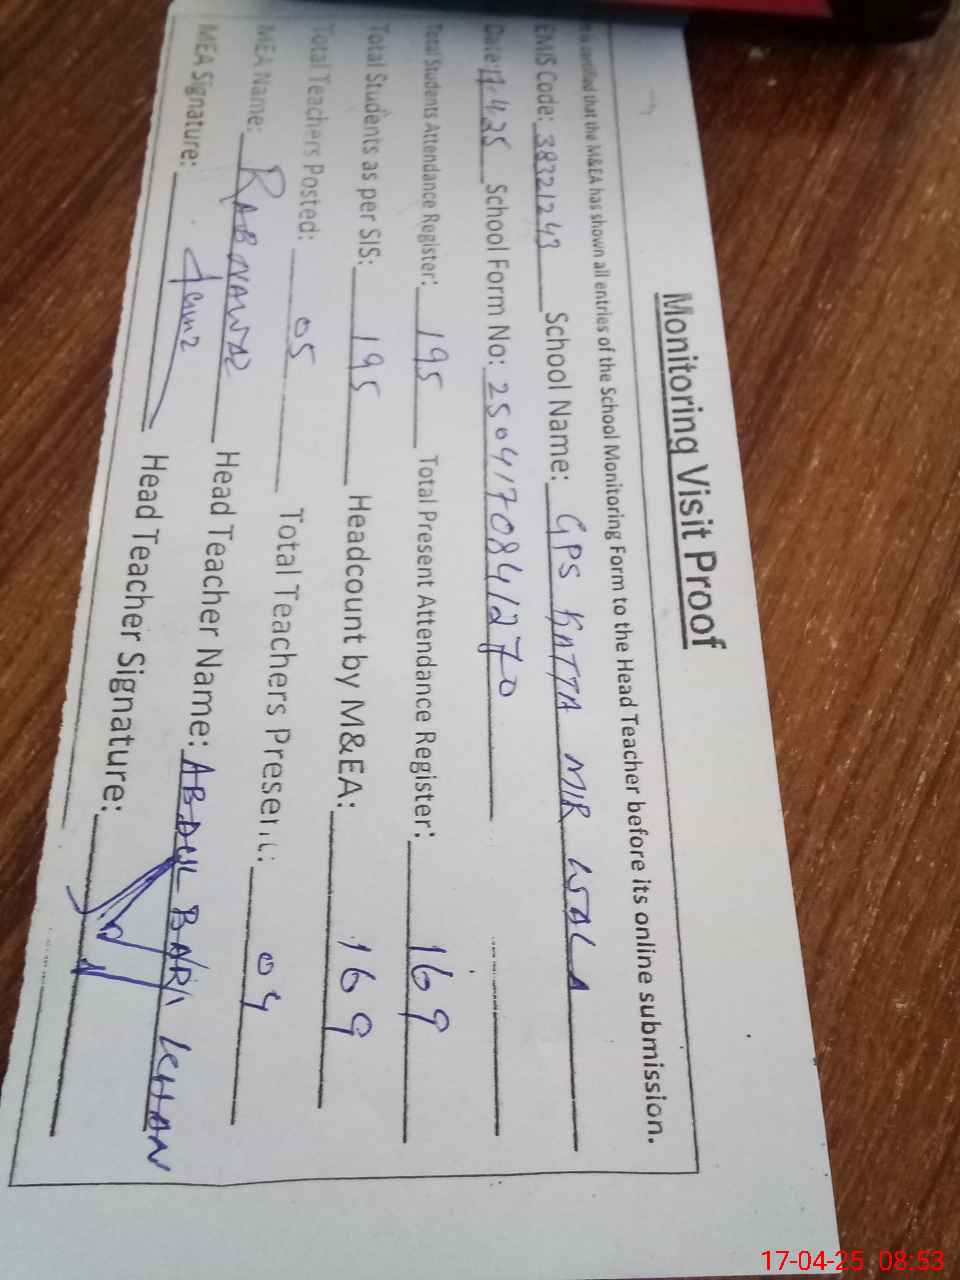 Monitoring Visit Proof
It is certified that the M&EA has shown all entries of the School Monitoring Form to the Head Teacher before its online submission.
EMIS Code: 38321243 School Name: GPS KATTA MIR WALA
Date: 17.4.25 School Form No: 2504170841270
Total Students Attendance Register: 195 Total Present Attendance Register: 169
Total Students as per SIS: 195 Headcount by M&EA: 169
Total Teachers Posted: 05 Total Teachers Present: 04
MEA Name: RABNAWAZ Head Teacher Name: ABDUL BARI KHAN
MEA Signature: Head Teacher Signature:
17-04-25 08:53